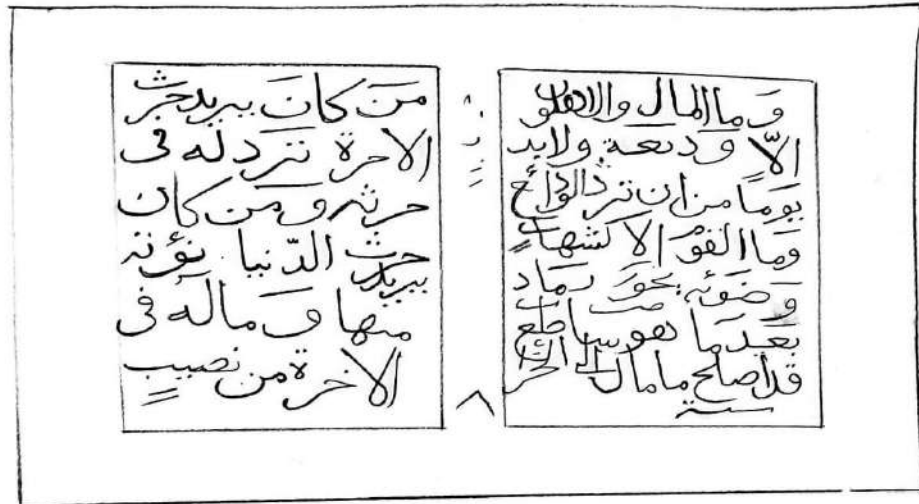 وَما المال والاهلون
الّا وديعة ولابد
يوماً من ان ترد الودائع
وما القوم الا كشهاب
وضوئه يحور رماد
بعد ما هو ساطع
قد اصلح ما مال الى
مَن كانَ يريد حرث
الاخرة نزد له فى
حرثه ومَن كان
يريد حرث الدّنيا نؤته
منها وَماله فى
الاخرة من نصيبٍ